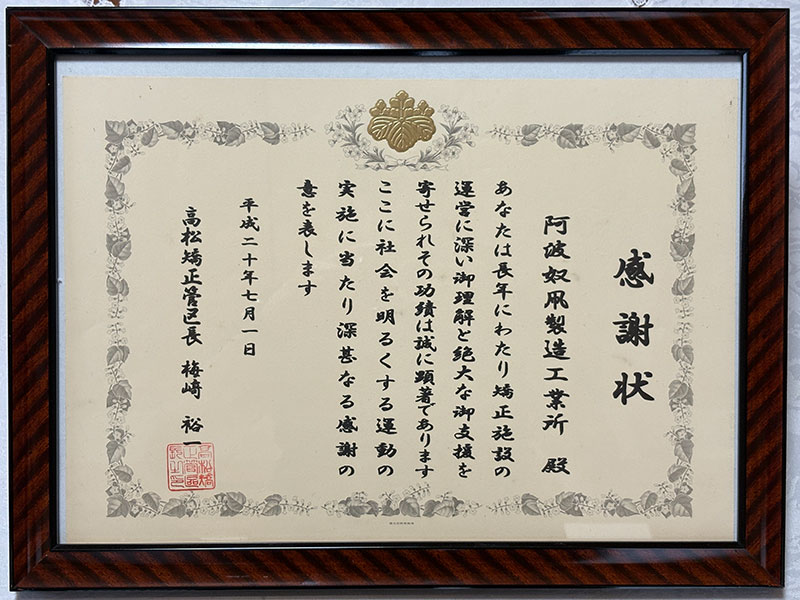 感謝状
阿波奴凧製造工業所 殿
あなたは長年にわたり矯正施設の
運営に深い御理解と絶大な御支援を
寄せられその功績は誠に顕著であります
ここに社会を明るくする運動の
実施に当たり深甚なる感謝の
意を表します
平成二十年七月一日
高松矯正管区長 梅﨑 裕一